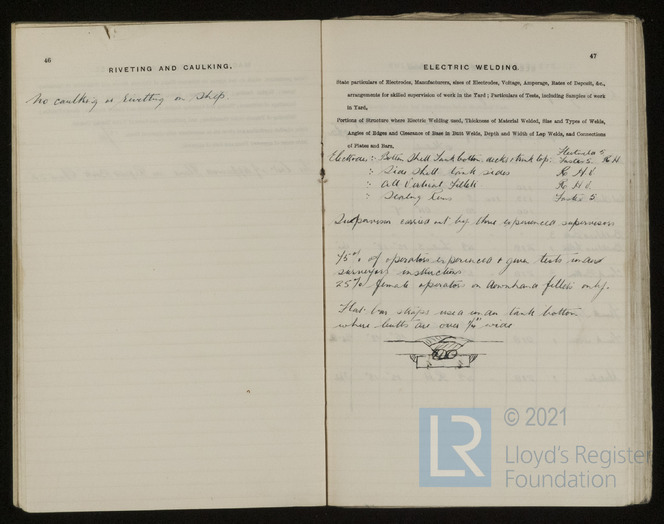 46
RIVETING AND CAULKING.
No caulking or riveting on ship.
47
ELECTRIC WELDING.
State particulars of Electrodes, Manufacturers, sizes of Electrodes, Voltage, Amperage, Rates of Deposit, &c.,
arrangements for skilled supervision of work in the Yard; Particulars of Tests, including Samples of work
in Yard,
Portions of Structure where Electric Welding used, Thickness of Material Welded, Size and Types of Welds,
Angles of Edges and Clearance of Bars in Butt Welds, Depth and Width of Lap Welds, and Connections
of Plates and Bars.
Electrodes :- Bottom Shell Tank bottom, decks & trunk top.
:- Side Shell tank sides
:- All Vertical Fillets
:- Sealing runs
Supervision carried out by three experienced supervisors
75% of operators experienced & given tests under
surveyors instructions
25% female operators on downhand fillets only.
Flat bar straps used under tank bottom
where butts are over 1/4" wide
LR
© 2021
Lloyd's Register
Foundation